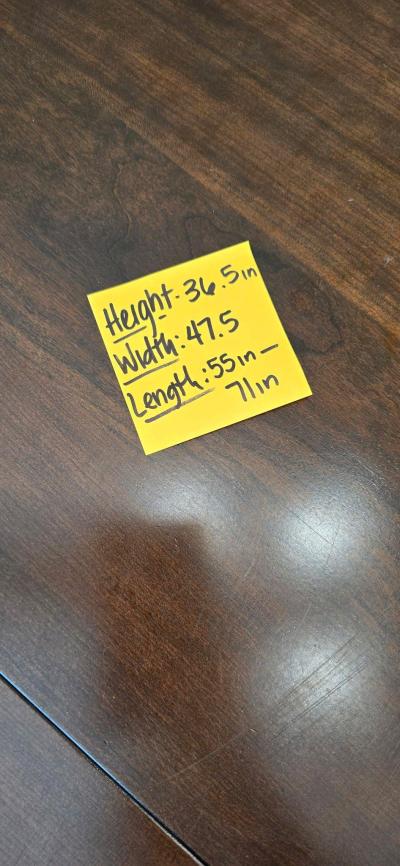 Height: 36.5in
Width: 47.5
Length: 55in -
71in